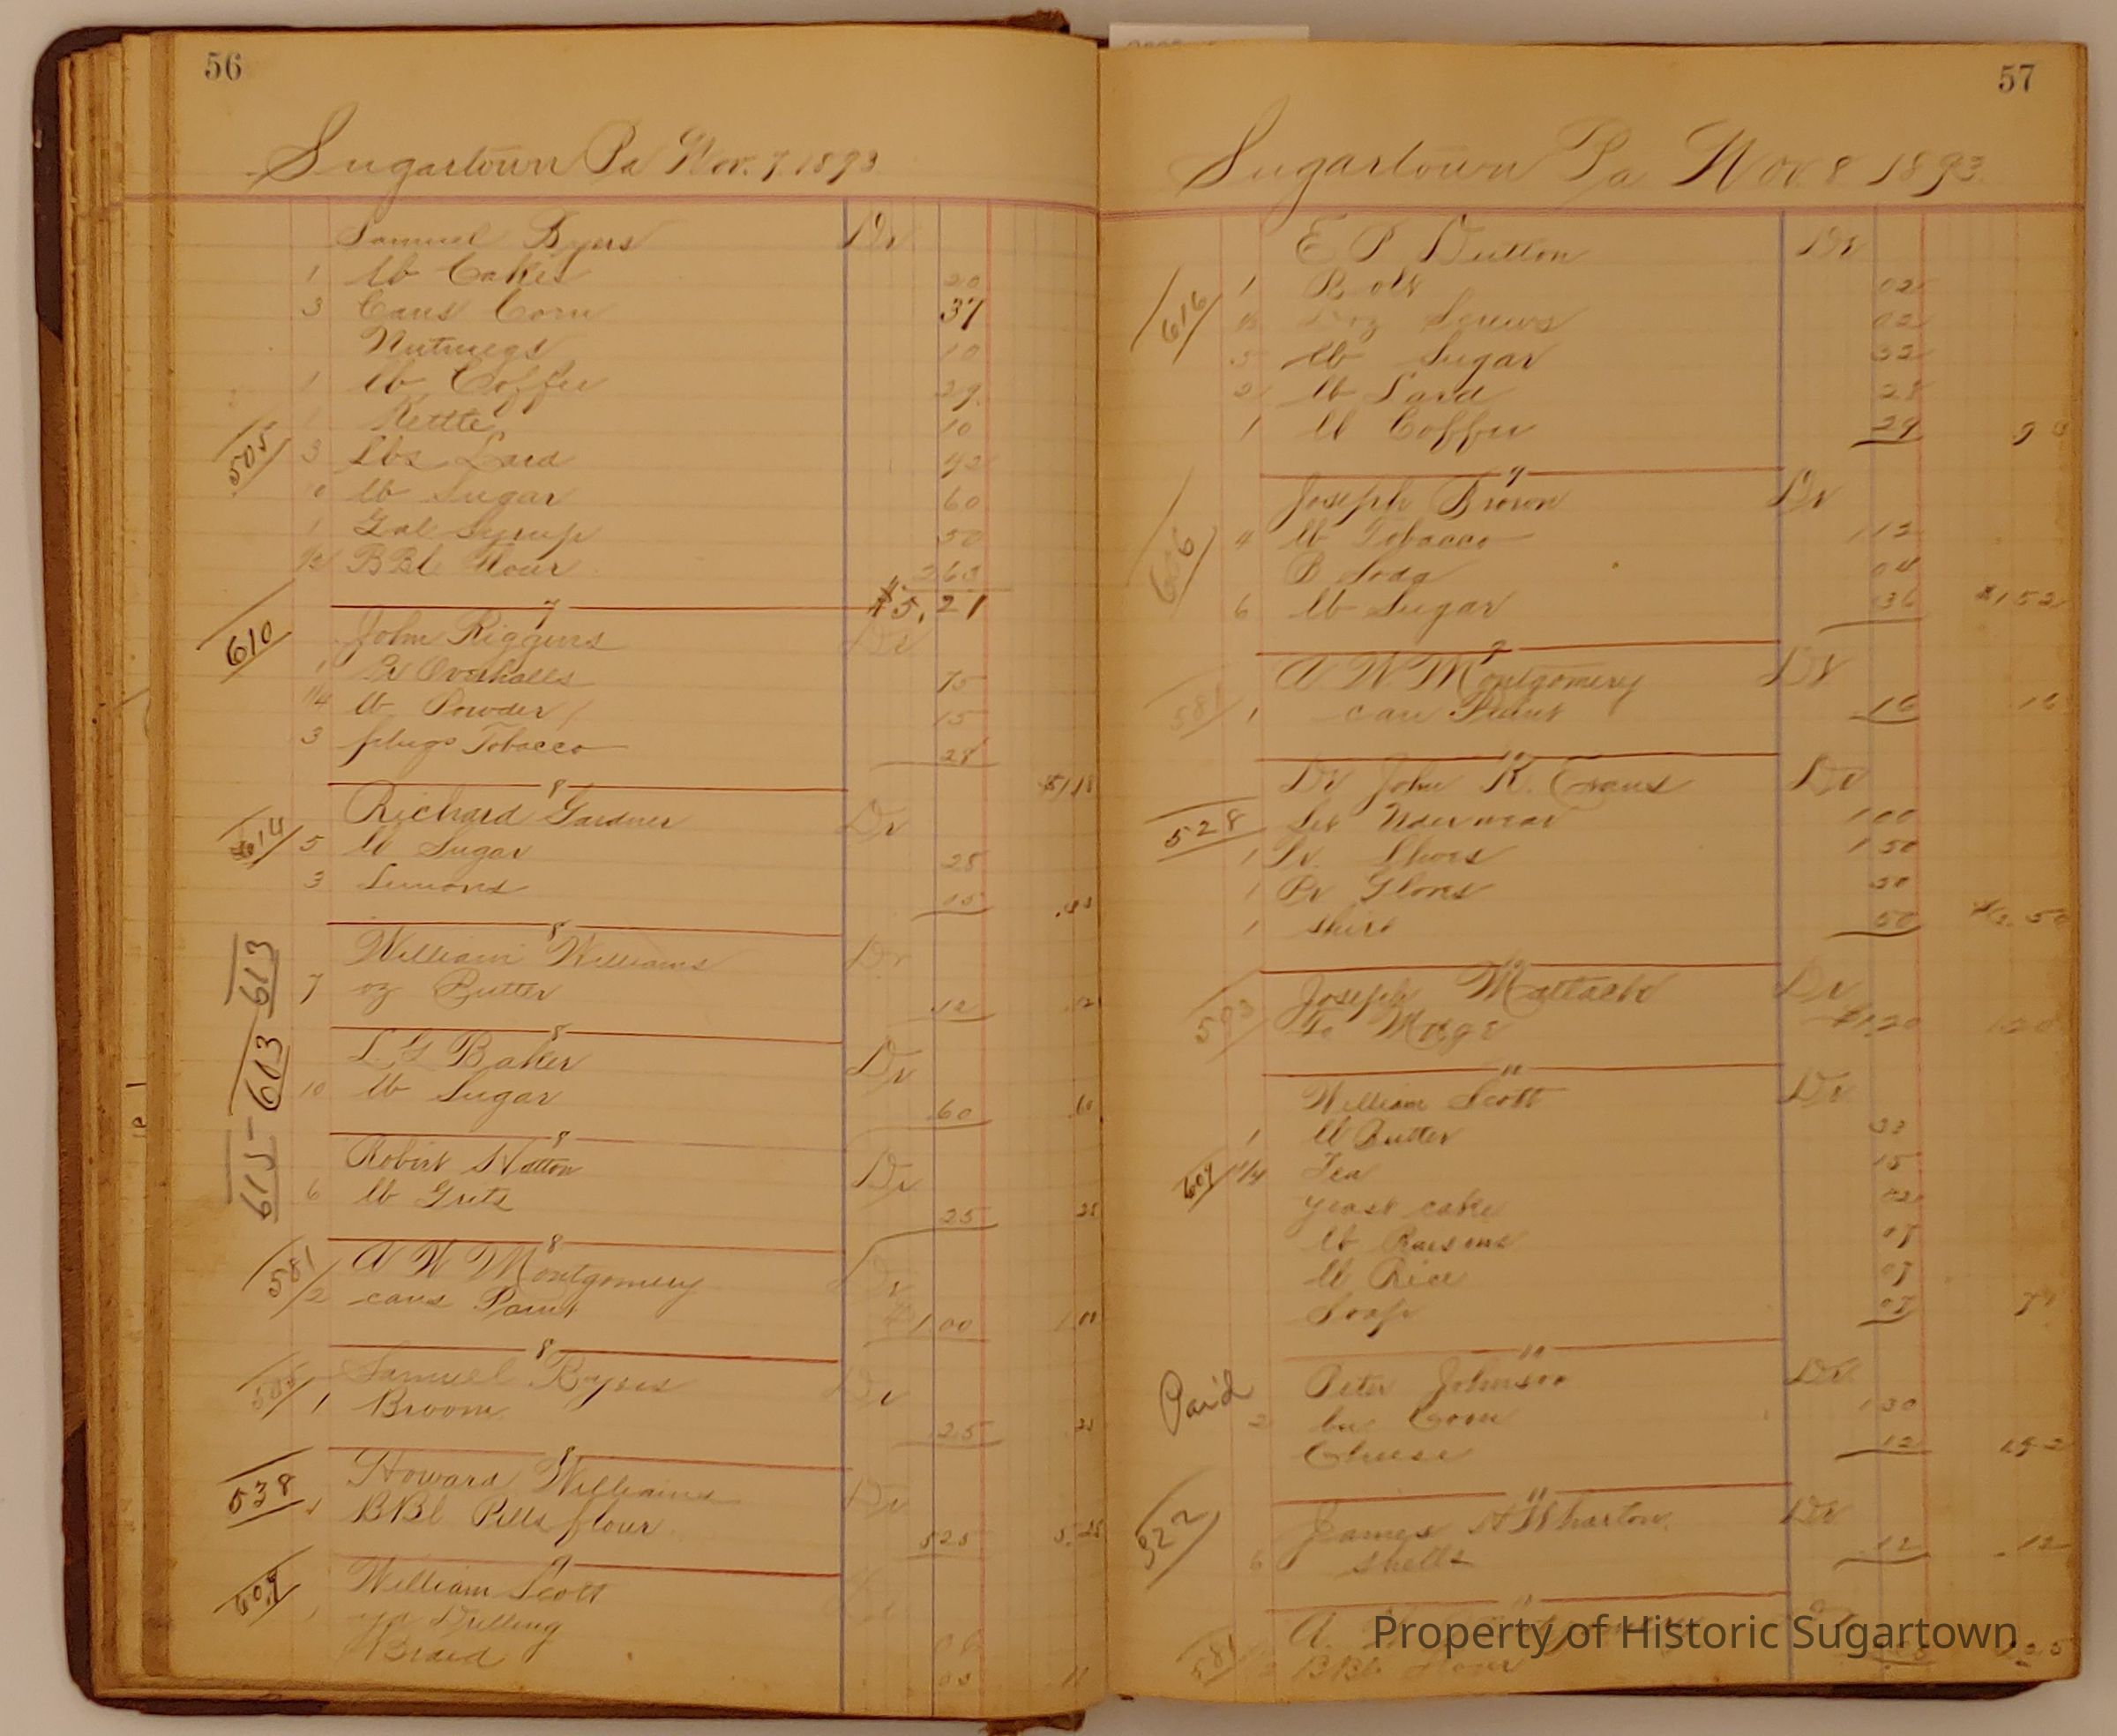 56
Sugartown Pa Nov. 7, 1893
Samuel Byers Dr
1 lb Cakes 20
3 Cans Corn 37
Nutmegs 10
1 lb Coffee 29
1 Kettle 10
505 3 Lbs Lard 42
lb Sugar 60
1 Gal Syrup 50
1/2 BBl Flour 263
$5.21
7
610 John Riggins Dr
1 Pr Overhalls 75
1/4 lb Powder 15
3 plugs Tobacco 28
$1 18
8
Richard Gardner Dr
614 5 lb Sugar 28
3 Lemons 15
8
613 William Williams Dr
7 oz Butter .12 .12
8
603 L G Baker Dr
10 lb Sugar .60 .60
8
615 Robert Hatton Dr
6 lb Grits 25 25
8
581 A W Montgomery Dr
2 cans Paint 1 00 1.00
8
505 Samuel Byers Dr
1 Broom .25 .25
8
538 Howard Williams Dr
1 BBl Pills flour 525 5.25
9
607 William Scott
1 yd Drilling 08
Braid 03 11
57
Sugartown Pa Nov. 8 1893
E P Dutton Dr
616 1 Bolt 02
Doz Screws 02
5 lb Sugar 32
2 lb Lard 28
1 lb Coffee 29 93
9
Joseph Brown Dr
4 lb Tobacco 112
B Soda 04
6 lb Sugar 36 $1 52
9
A W Montgomery Dr
581 1 can Paint 16 16
10
Dr John K. Evans Dr
528 Set Nderwear 100
1 Pr Shoes 150
1 Pr Gloves 50
1 shirt 50 $3.50
10
503 Joseph Dr
To $1.20 1.20
11
William Scott Dr
1 lb Butter 33
607 1/4 Tea 15
yeast cake 02
lb Raisens 07
lb Rice 07
Soap 07
11
Paid Peter Johnson Dr
2 bu Corn 130
Cheese 12
11
522 James A Wharton Dr
6 shells .12 .12
11
581 A.
BBl flour
Property of Historic Sugartown